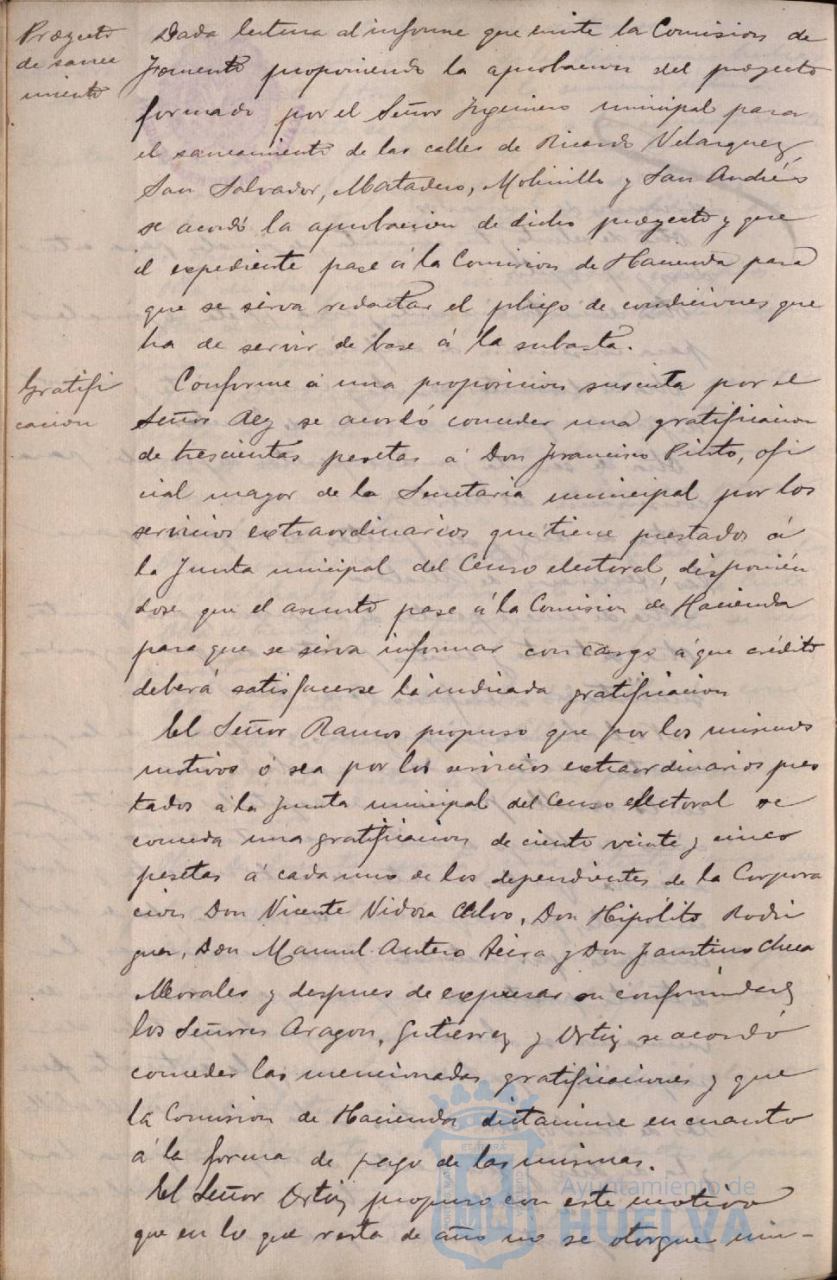 Proyecto
de sanea
miento
Dada lectura al informe que emite la Comision de
Fomento proponiendo la aprobacion del proyecto
formado por el Señor Ingeniero municipal para
el saneamiento de las calles de Ricardo Velazquez,
San Salvador, Matadero, Molinillo y San Andrés
se acordó la aprobacion de dicho proyecto y que
el expediente pase á la Comision de Hacienda para
que se sirva redactar el pliego de condiciones que
ha de servir de base á la subasta.
Gratifi
cacion
Conforme á una proposicion suscrita por el
Señor Rey se acordó conceder una gratificacion
de trescientas pesetas á Don Francisco Pinto, ofi
cial mayor de la Secretaria municipal por los
servicios extraordinarios que tiene prestados á
la Junta municipal del Censo electoral, disponién
dose que el asunto pase á la Comision de Hacienda
para que se sirva informar con cargo á que crédito
deberá satisfacerse la indicada gratificacion
El Señor Ramos propuso que por los mismos
motivos ó sea por los servicios extraordinarios pres
tados á la Junta municipal del Censo electoral se
conceda una gratificacion de ciento veinte y cinco
pesetas á cada uno de los dependientes de la Corpora
cion Don Vicente Vidosa Calvo, Don Hipólito Rodri
guez, Don Manuel Antero y Don Faustino Checa
Morales y despues de expresar su conformidad
los Señores Aragon, Gutierrez y Ortiz se acordó
conceder las mencionadas gratificaciones y que
la Comision de Hacienda dictamine en cuanto
á la forma de pago de las mismas.
El Señor Ortiz propuso con este motivo
que en lo que resta de año no se otorgue nin-
Ayuntamiento de
HUELVA